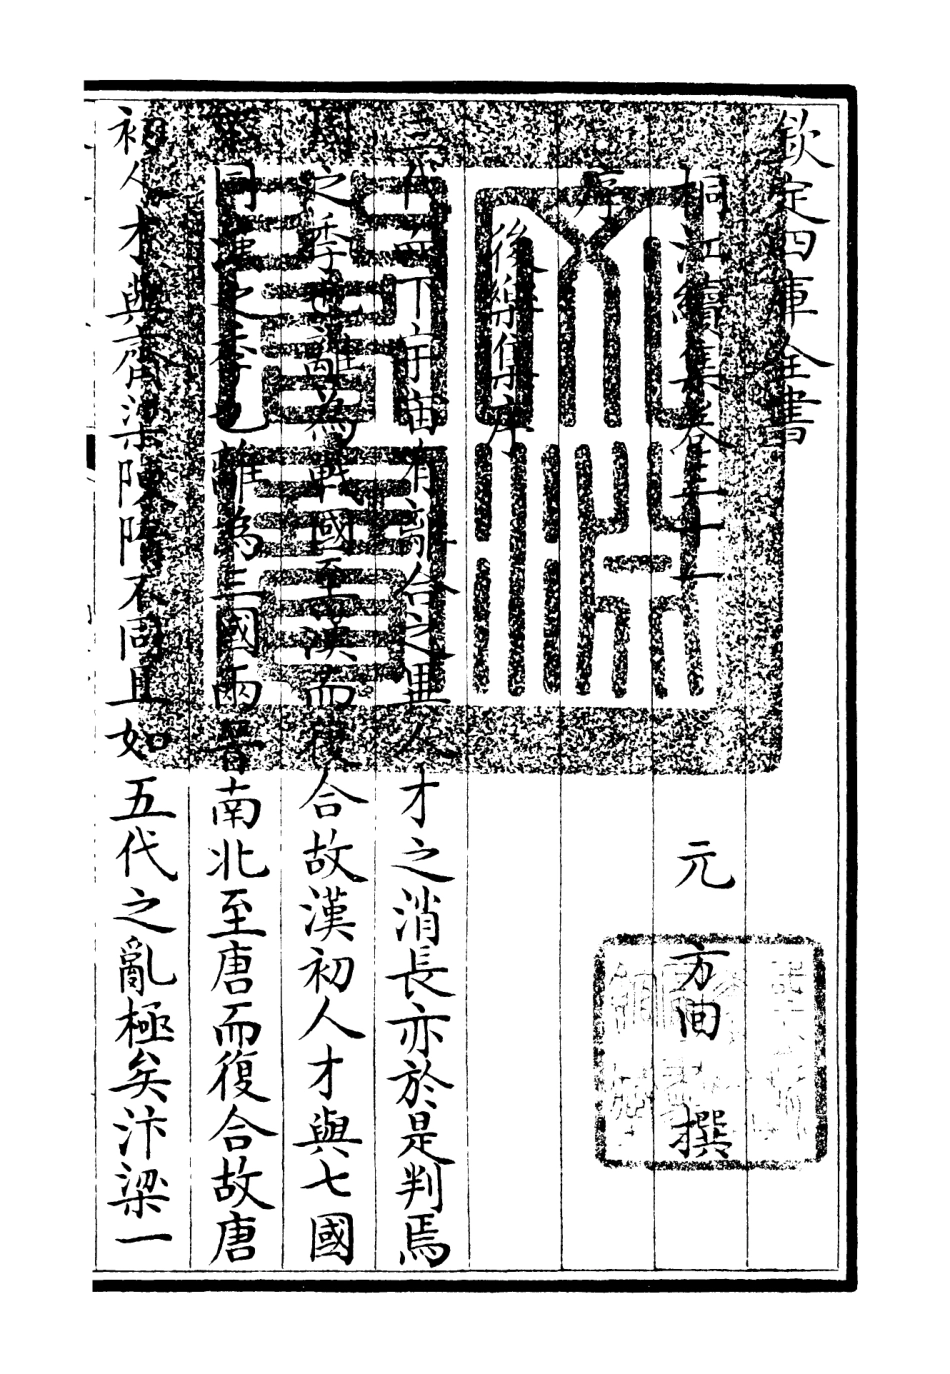 欽定四庫全書
桐江續集卷三十一
元 方回 撰
序
後樂集序
三代而下宇宙有离合之異人才之消長亦於是判焉
周之季也離為戰國至漢而復合故漢初人才與七國
不同漢之季也離為三國兩晉南北至唐而復合故唐
初人才與齊梁陳隋不同且如五代之亂極矣汴梁一